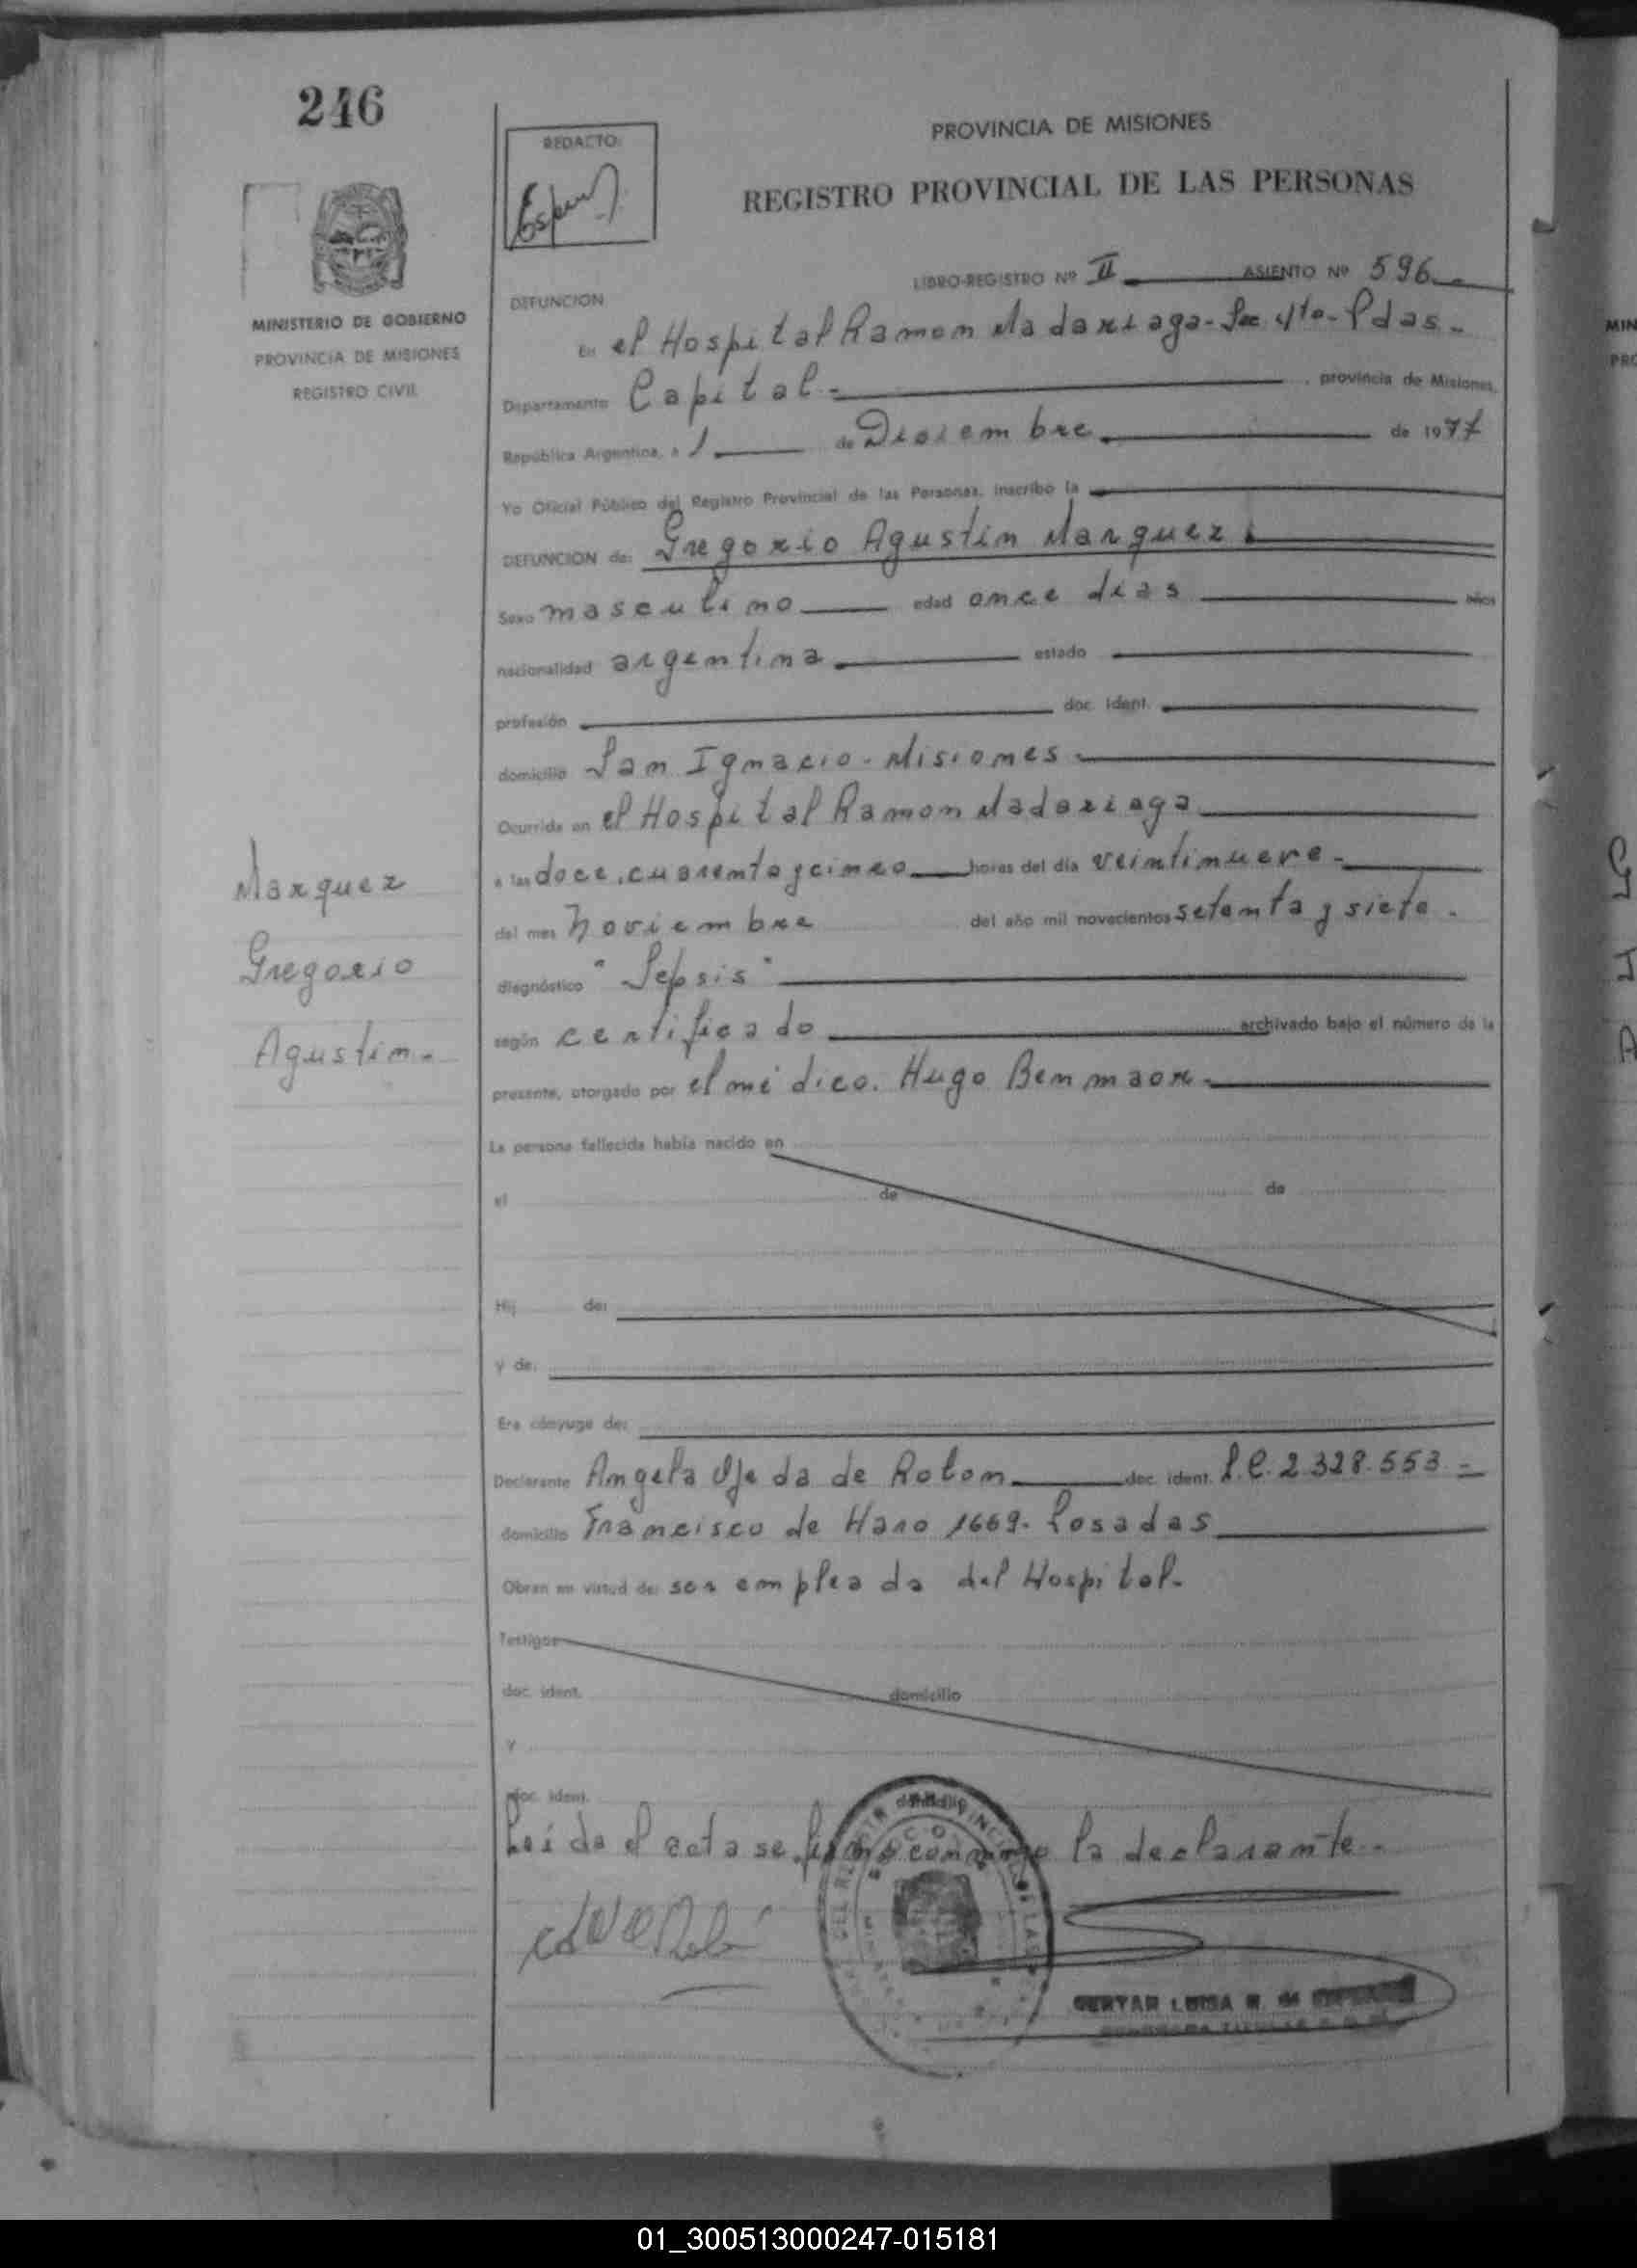 246
REDACTO:
PROVINCIA DE MISIONES
REGISTRO PROVINCIAL DE LAS PERSONAS
MINISTERIO DE GOBIERNO
PROVINCIA DE MISIONES
REGISTRO CIVIL
LIBRO-REGISTRO Nº II ASIENTO Nº 596
DEFUNCION
En el Hospital Ramon Madariaga - Sec. 4ta - Pdas.
Departamento Capital provincia de Misiones,
República Argentina, a 1 de Diciembre de 1977
Yo Oficial Público del Registro Provincial de las Personas, inscribo la
DEFUNCION de: Gregorio Agustin Marquez
Sexo masculino edad once dias años
nacionalidad argentina estado
profesión doc. ident.
domicilio San Ignacio - Misiones
Ocurrida en el Hospital Ramon Madariaga
a las doce, cuarenta y cinco horas del día veintinueve
del mes noviembre del año mil novecientos setenta y siete.
diagnóstico "Sepsis"
según certificado archivado bajo el número de la
presente, otorgado por el médico. Hugo Benmaor
Marquez
Gregorio
Agustin.
La persona fallecida había nacido en
el de de
Hij de:
y de:
Era cónyuge de:
Declarante Angela Ojeda de Rolon doc. ident. L.C. 2.328.553.=
domicilio Francisco de Haro 1669. Posadas
Obran en virtud de: ser empleada del Hospital.
Testigos
doc. ident. domicilio
y
doc. ident. domicilio
Leida el acta se firma conmigo la declarante.
LUISA
MIN
PRO
01_300513000247-015181